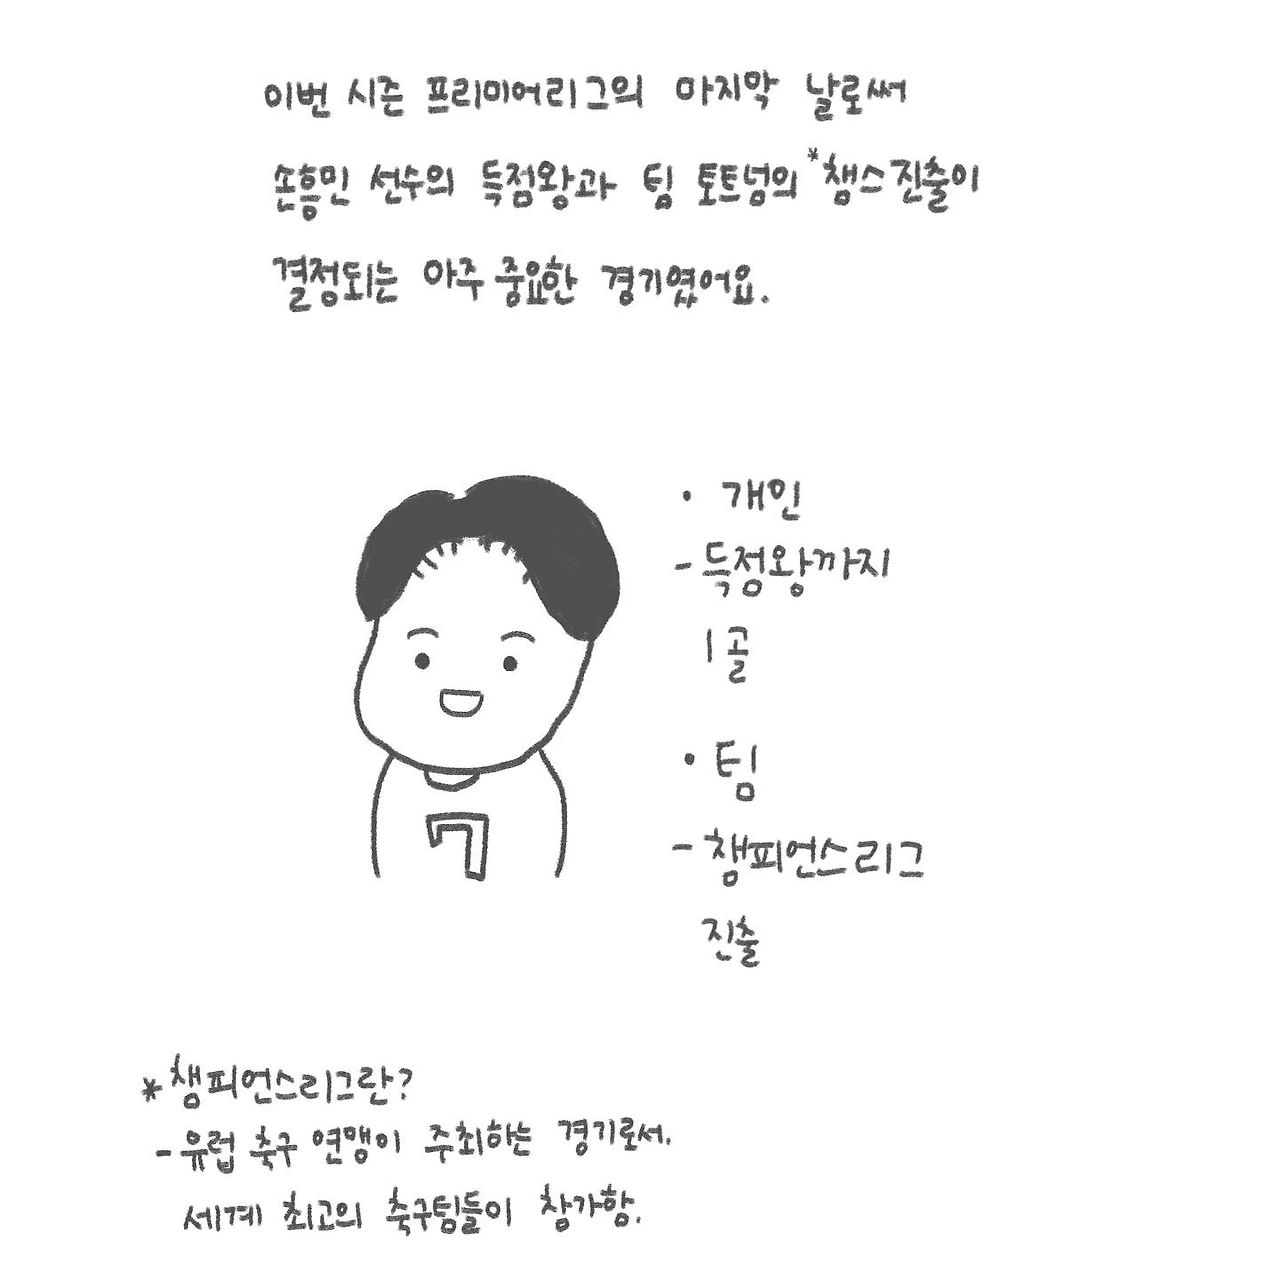 이번 시즌 프리미어리그의 마지막 날로써
손흥민 선수의 득점왕과 팀 토트넘의 *챔스진출이
결정되는 아주 중요한 경기였어요.
• 개인
- 득점왕까지
1골
• 팀
- 챔피언스리그
진출
7
* 챔피언스리그란?
- 유럽 축구 연맹이 주최하는 경기로서.
세계 최고의 축구팀들이 참가함.